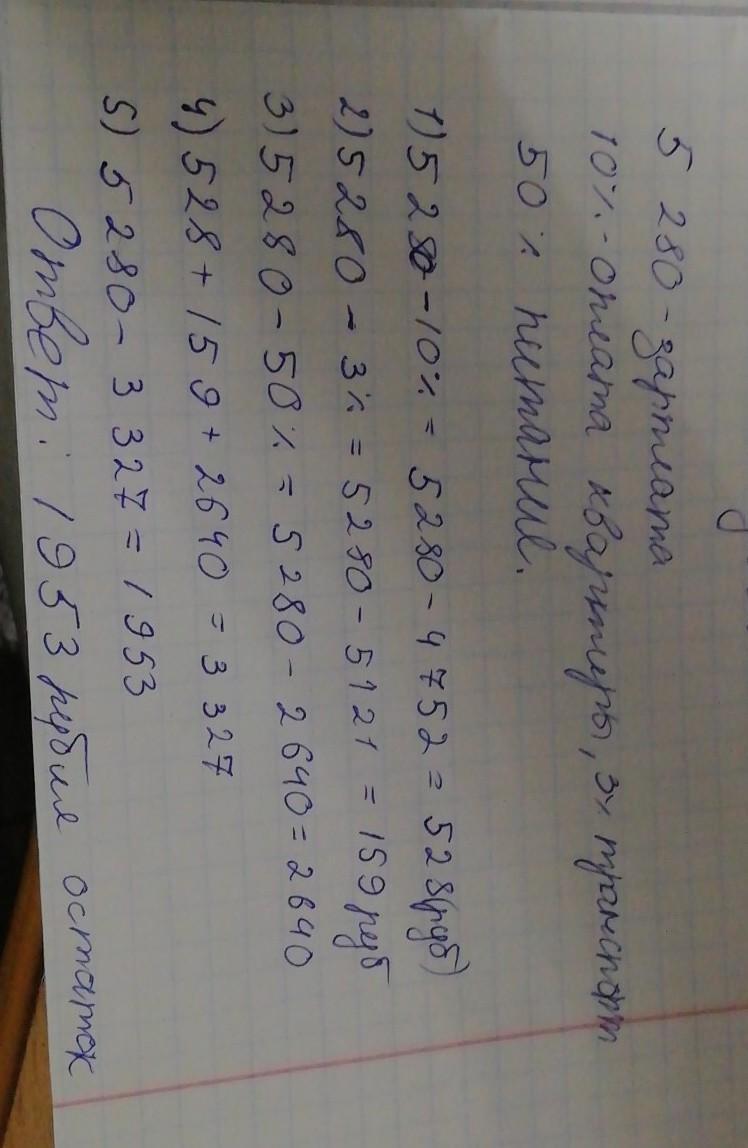 5 280 - зарплата
10% - оплата квартиры, 3% транспорт
50% питание.
1) 5280 - 10% = 5280 - 4752 = 528(руб)
2) 5280 - 3% = 5280 - 5121 = 159 руб
3) 5280 - 50% = 5280 - 2640 = 2640
4) 528 + 159 + 2640 = 3 327
5) 5280 - 3 327 = 1953
Ответ: 1953 рубля остаток